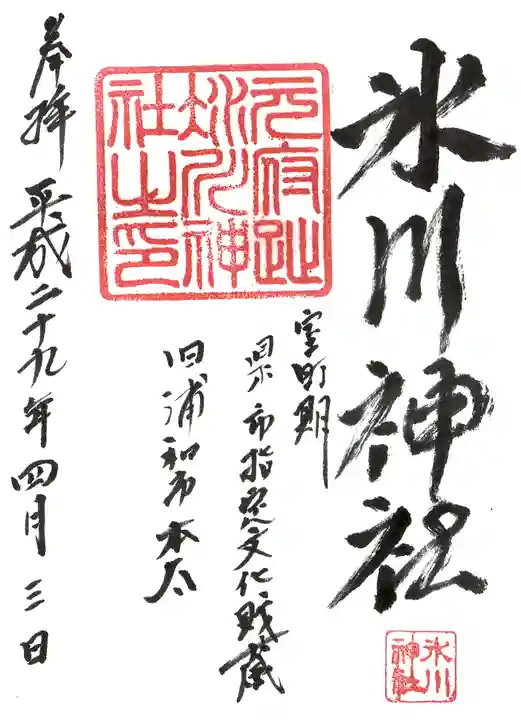 氷川神社
氷川
神社
室町期
県市指定文化財蔵
旧浦和市本太
元府趾
氷川神
社之印
奉拝 平成二十九年四月三日